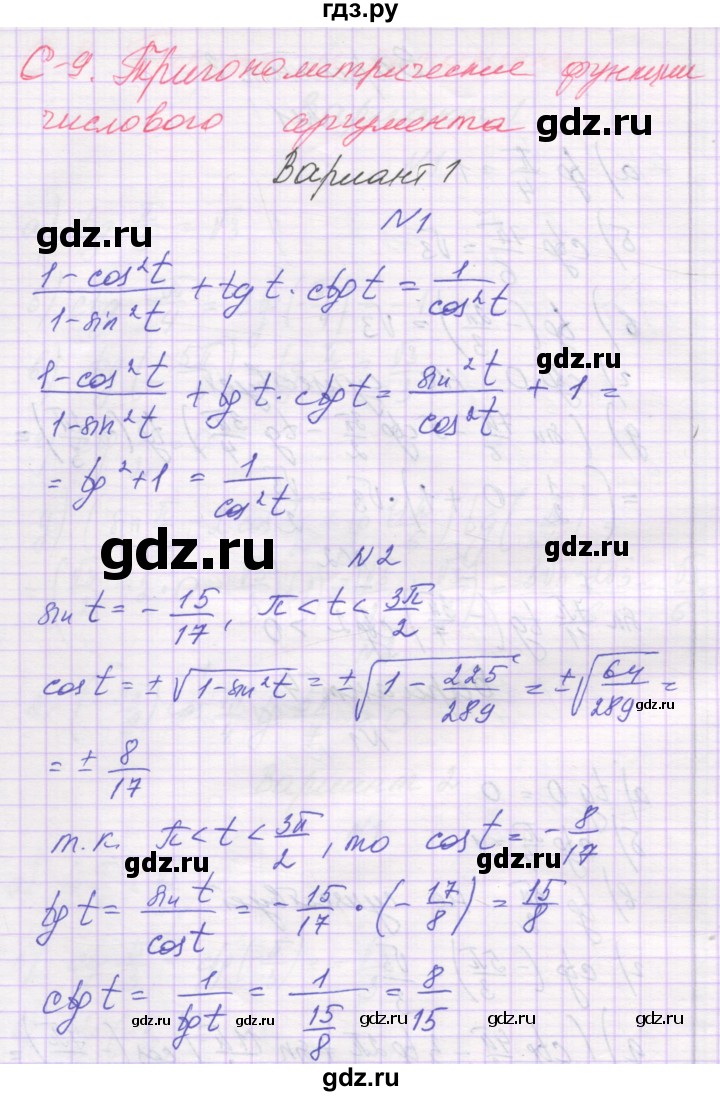 гдз.ру
С-9. Тригонометрические функции
числового аргумента
gdz.ru
Вариант 1
N1
gdz.ru
(1-cos²t)/(1-sin²t) + tg t · ctg t = 1/cos²t
gdz.ru
(1-cos²t)/(1-sin²t) + tg t · ctg t = sin²t/cos²t + 1 =
= tg²+1 = 1/cos²t
gdz.ru
gdz.ru
N2
sin t = - 15/17, π < t < 3π/2
cos t = ± √(1-sin²t) = ± √(1 - 225/289) = ± √(64/289) =
gdz.ru
= ± 8/17
т.к. π < t < 3π/2, то cos t = - 8/17
gdz.ru
gdz.ru
tg t = sin t/cos t = - 15/17 · (- 17/8) = 15/8
ctg t = 1/tg t = 1/(15/8) = 8/15
gdz.ru
gdz.ru
gdz.ru
gdz.ru
gdz.ru